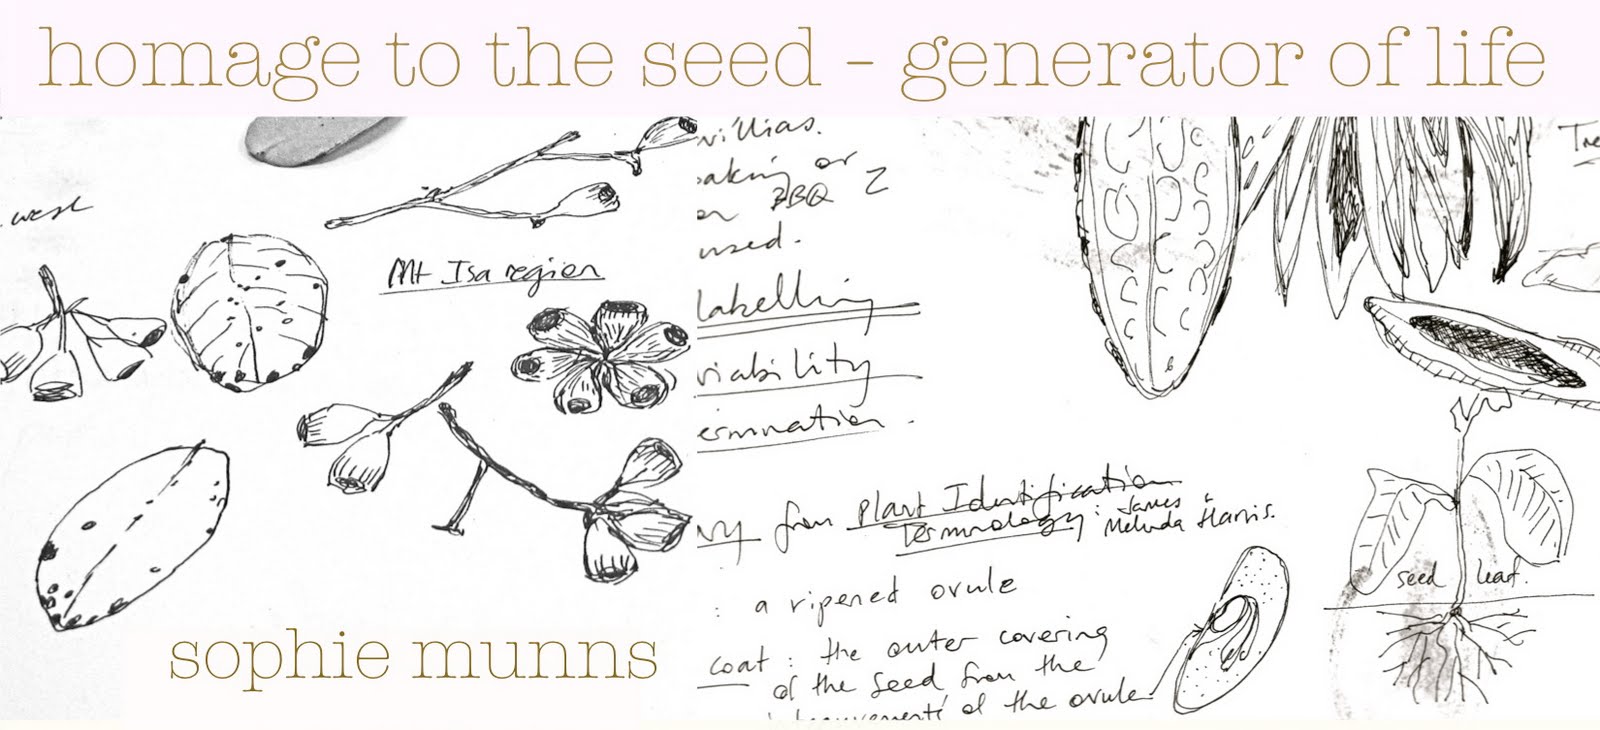 homage to the seed - generator of life
west
Mt Isa region
or
BBQ
used.
labelling
viability
from Plant Identification
Terminology: James &
Melinda Harris.
: a ripened ovule
coat : the outer covering
of the seed from the
of the ovule
seed leaf.
sophie munns